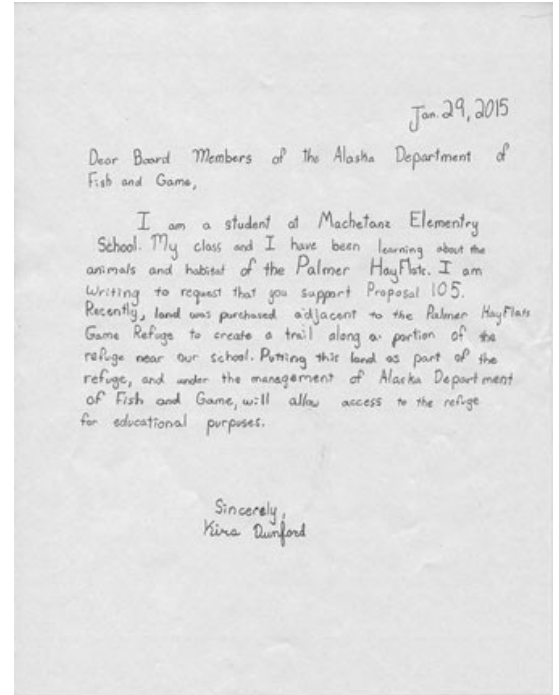 Jan. 29, 2015
Dear Board Members of the Alaska Department of
Fish and Game,
I am a student at Machetanz Elementry
School. My class and I have been learning about the
animals and habitat of the Palmer HayFlats. I am
Writing to request that you support Proposal 105.
Recently, land was purchased adjacent to the Palmer HayFlats
Game Refuge to create a trail along a portion of the
refuge near our school. Putting this land as part of the
refuge, and under the management of Alaska Department
of Fish and Game, will allow access to the refuge
for educational purposes.
Sincerely,
Kira Dunford